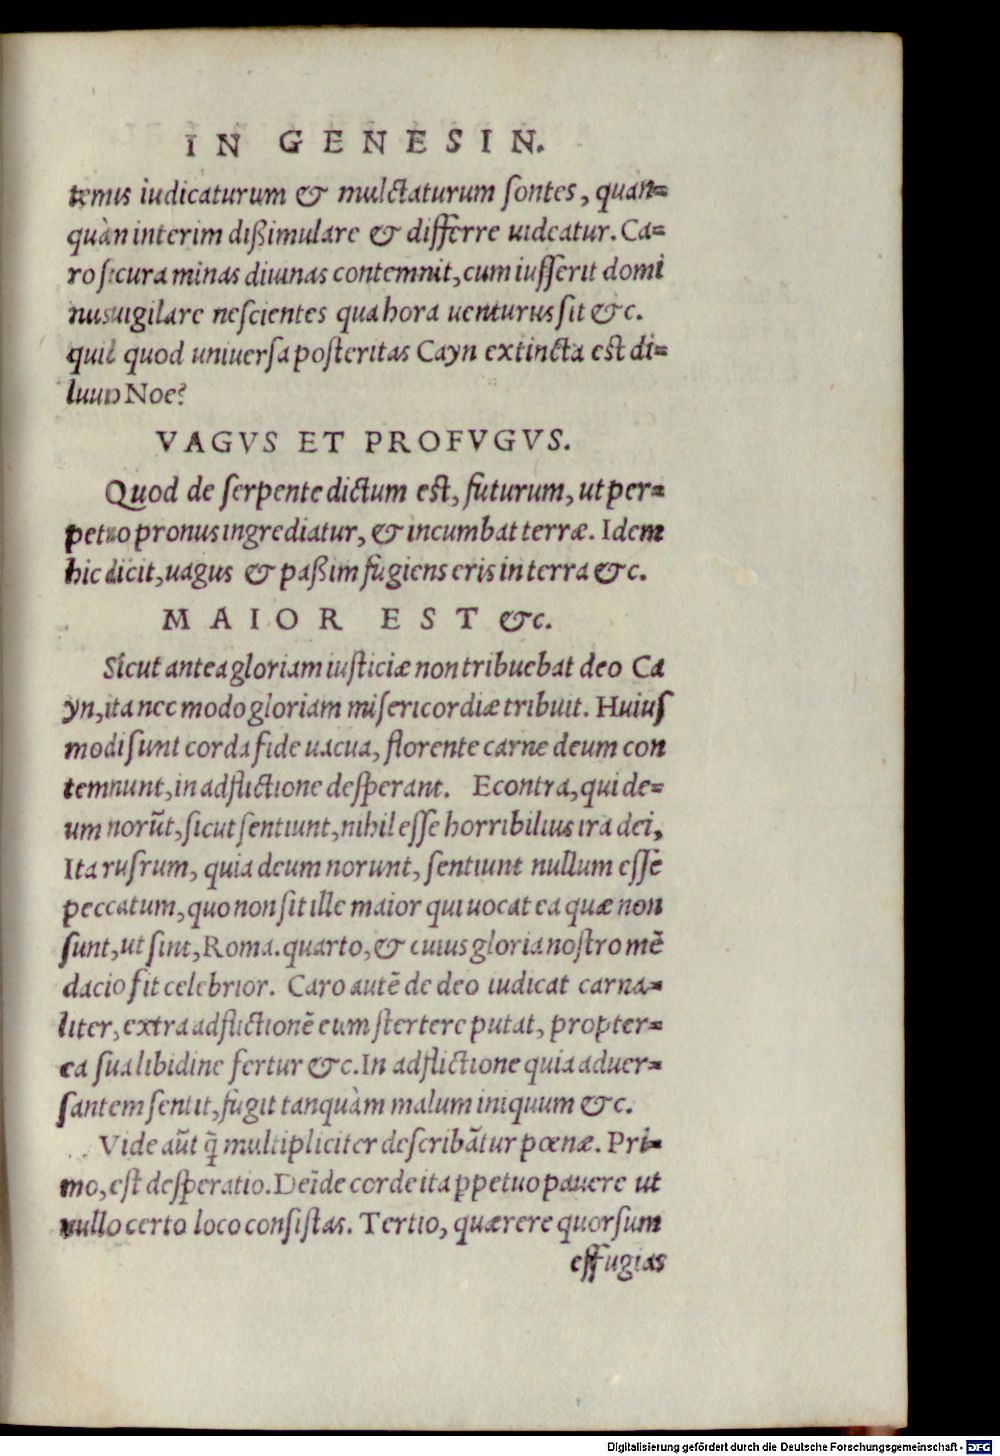 IN GENESIN.
temus iudicaturum & mulctaturum ſontes, quan=
quàn interim dißimulare & differre uideatur. Ca=
ro ſecura minas diuinas contemnit, cum iuſſerit domi
nus uigilare neſcientes qua hora uenturus ſit &c.
quid quod uniuerſa poſteritas Cayn extincta eſt di=
luuio Noe?
VAGVS ET PROFVGVS.
Quod de ſerpente dictum eſt, futurum, ut per=
petuo pronus ingrediatur, & incumbat terræ. Idem
hic dicit, uagus & paßim fugiens eris in terra &c.
MAIOR EST &c.
Sicut antea gloriam iuſticiæ non tribuebat deo Ca
yn, ita nec modo gloriam miſericordiæ tribuit. Huiuſ
modi ſunt corda fide uacua, florente carne deum con
temnunt, in adflictione deſperant. Econtra, qui de=
um norūt, ſicut ſentiunt, nihil eſſe horribilius ira dei,
Ita rurſum, quia deum norunt, ſentiunt nullum eſſe
peccatum, quo non ſit ille maior qui uocat ea quæ non
ſunt, ut ſint, Roma. quarto, & cuius gloria noſtro mē
dacio fit celebrior. Caro autē de deo iudicat carna=
liter, extra adflictionē eum ſtertere putat, propter=
ea ſua libidine fertur &c. In adflictione quia aduer=
ſantem ſentit, fugit tanquàm malum iniquum &c.
Vide aūt q̄ multipliciter deſcribātur pœnæ. Pri=
mo, eſt deſperatio. Deīde corde ita ꝑpetuo pauere ut
nullo certo loco conſiſtas. Tertio, quærere quorſum
effugias
Digitalisierung gefördert durch die Deutsche Forschungsgemeinschaft - DFG